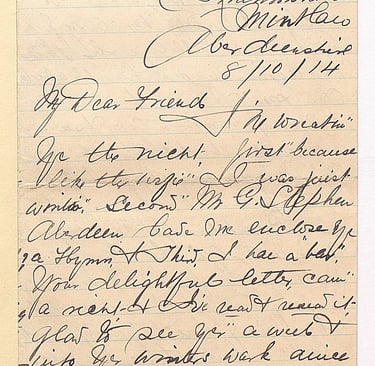 Mintlaw
Aberdeenshire
8/10/14
My Dear Friends
I'm wreatin'
Ye the nicht, first "because
like the wifie" I was juist
wontin'. Second Mr G. Stephen
Aberdeen bade me enclose ye
a Hymn, & Third I hae a "
Your delightful letter, cam'
a nicht & I've read & reread it
glad to see yer a weel &
into yer winters wark aince